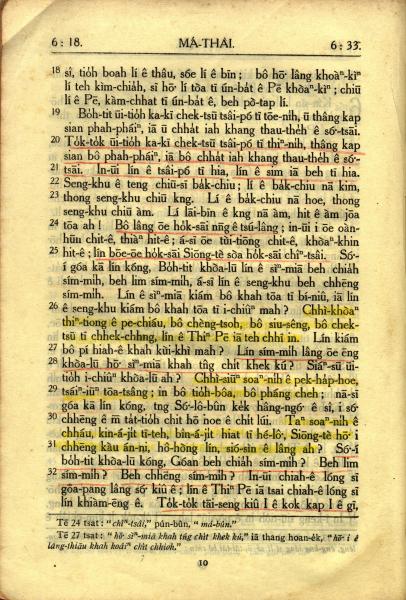 6 : 18. MÁ-THÀI. 6 : 33.
18 sî, tio̍h boah lí ê thâu, sóe lí ê bīn; bô hō͘ lâng khoàⁿ-kìⁿ
lí teh kìm-chia̍h, sī hō͘ lí tōa tī ún-ba̍t ê Pē khòaⁿ-kìⁿ; chiū
lí ê Pē, kàm-chhat tī ún-ba̍t ê, beh pò-tap lí.
19 Bo̍h-tit ūi-tio̍h ka-kī chek-tsū tsâi-pó tī tōe-nih, ū thâng kap
sian phah-pháiⁿ, iā ū chha̍t iah khang thau-the̍h ê só͘-tsāi.
20 To̍k-to̍k ūi-tio̍h ka-kī chek-tsū tsâi-pó tī thiⁿ-nih, thâng kap
sian bô phah-pháiⁿ, iā bô chha̍t iah khang thau-the̍h ê só͘-
21 tsāi. In-ūi lín ê tsâi-pó tī hia, lín ê sim iā beh tī hia.
22 Seng-khu ê teng chiū-sī ba̍k-chiu; lí ê ba̍k-chiu nā kim,
23 thong seng-khu chiū kng. Lí ê ba̍k-chiu nā hoe, thong
seng-khu chiū àm. Lí lāi-bīn ê kng nā àm, hit ê àm jōa
24 tōa ah! Bô lâng ōe ho̍k-sāi nn̄g ê tsú-lâng; in-ūi i ōe oàn-
hūn chit-ê, thiàⁿ hit-ê; á-sī óe tùi-tiōng chit-ê, khòaⁿ-khin
25 hit-ê; lín bōe-ōe ho̍k-sāi Siōng-tè sòa ho̍k-sāi chîⁿ-tsâi. Só͘-
í góa kā lín kóng, Bo̍h-tit khòa-lū lín ê sìⁿ-miā beh chia̍h
sím-mih, beh lim sím-mih, á-sī lín ê seng-khu beh chhēng
sím-mih. Lín ê sìⁿ-miā kiám bô khah tōa tī bí-niû, iā lín
26 ê seng-khu kiám bô khah tōa tī i-chiûⁿ mah? Chhì-khòaⁿ
thiⁿ-tiong ê pe-chiáu, bô chèng-tsoh, bô siu-sêng, bô chek-
tsū tī chhek-chhng, lín ê Thiⁿ Pē iā teh chhī in. Lín kiám
27 bô pí hiah-ê khah kùi-khì mah? Lín sím-mih lâng ōe ēng
28 khòa-lū hō͘ sìⁿ-miā khah tn̂g chi̍t khek kú? Siáⁿ-sū ūi-
tio̍h i-chiûⁿ khòa-lū ah? Chhì-siūⁿ soaⁿ-nih ê pek-ha̍p-hoe,
29 tsáiⁿ-iūⁿ tōa-tsâng; in bô tio̍h-bôa, bô pháng cheh; nā-sī
góa kā lín kóng, tng Só͘-lô-bûn ke̍k hâng-ngó͘ ê sî, i só͘
30 chhēng ê m̄ ta̍t-tio̍h chit hō noe ê chi̍t lúi. Taⁿ soaⁿ-nih ê
chháu, kin-á-ji̍t tī-teh, bîn-á-ji̍t hiat tī hé-lô͘, Siōng-tè hō͘ i
31 chhēng kàu án-ni, hô-hòng lín, sió-sìn ê lâng ah? Só͘-í
bo̍h-tit khòa-lū kóng, Góan beh chia̍h sím-mih? Beh lim
32 sím-mih? Beh chhēng sím-mih? In-ūi chiah-ê lóng sī
gōa-pang lâng só͘ kiû ê; lín ê Thiⁿ Pē iā tsai chiah-ê lóng sī
33 lín khiàm-ēng ê. To̍k-to̍k tāi-seng kiû I ê kok kap I ê gī,
Tē 24 tsat: “chîⁿ-tsâi,” pún-bûn, “má-bûn.”
Tē 27 tsat: “hō͘ sìⁿ-miā khah tn̂g chi̍t khek kú,” iā thang hoan-e̍k, “hō͘ i ê
lâng-thiāu khah koâiⁿ chi̍t chhioh.”
10